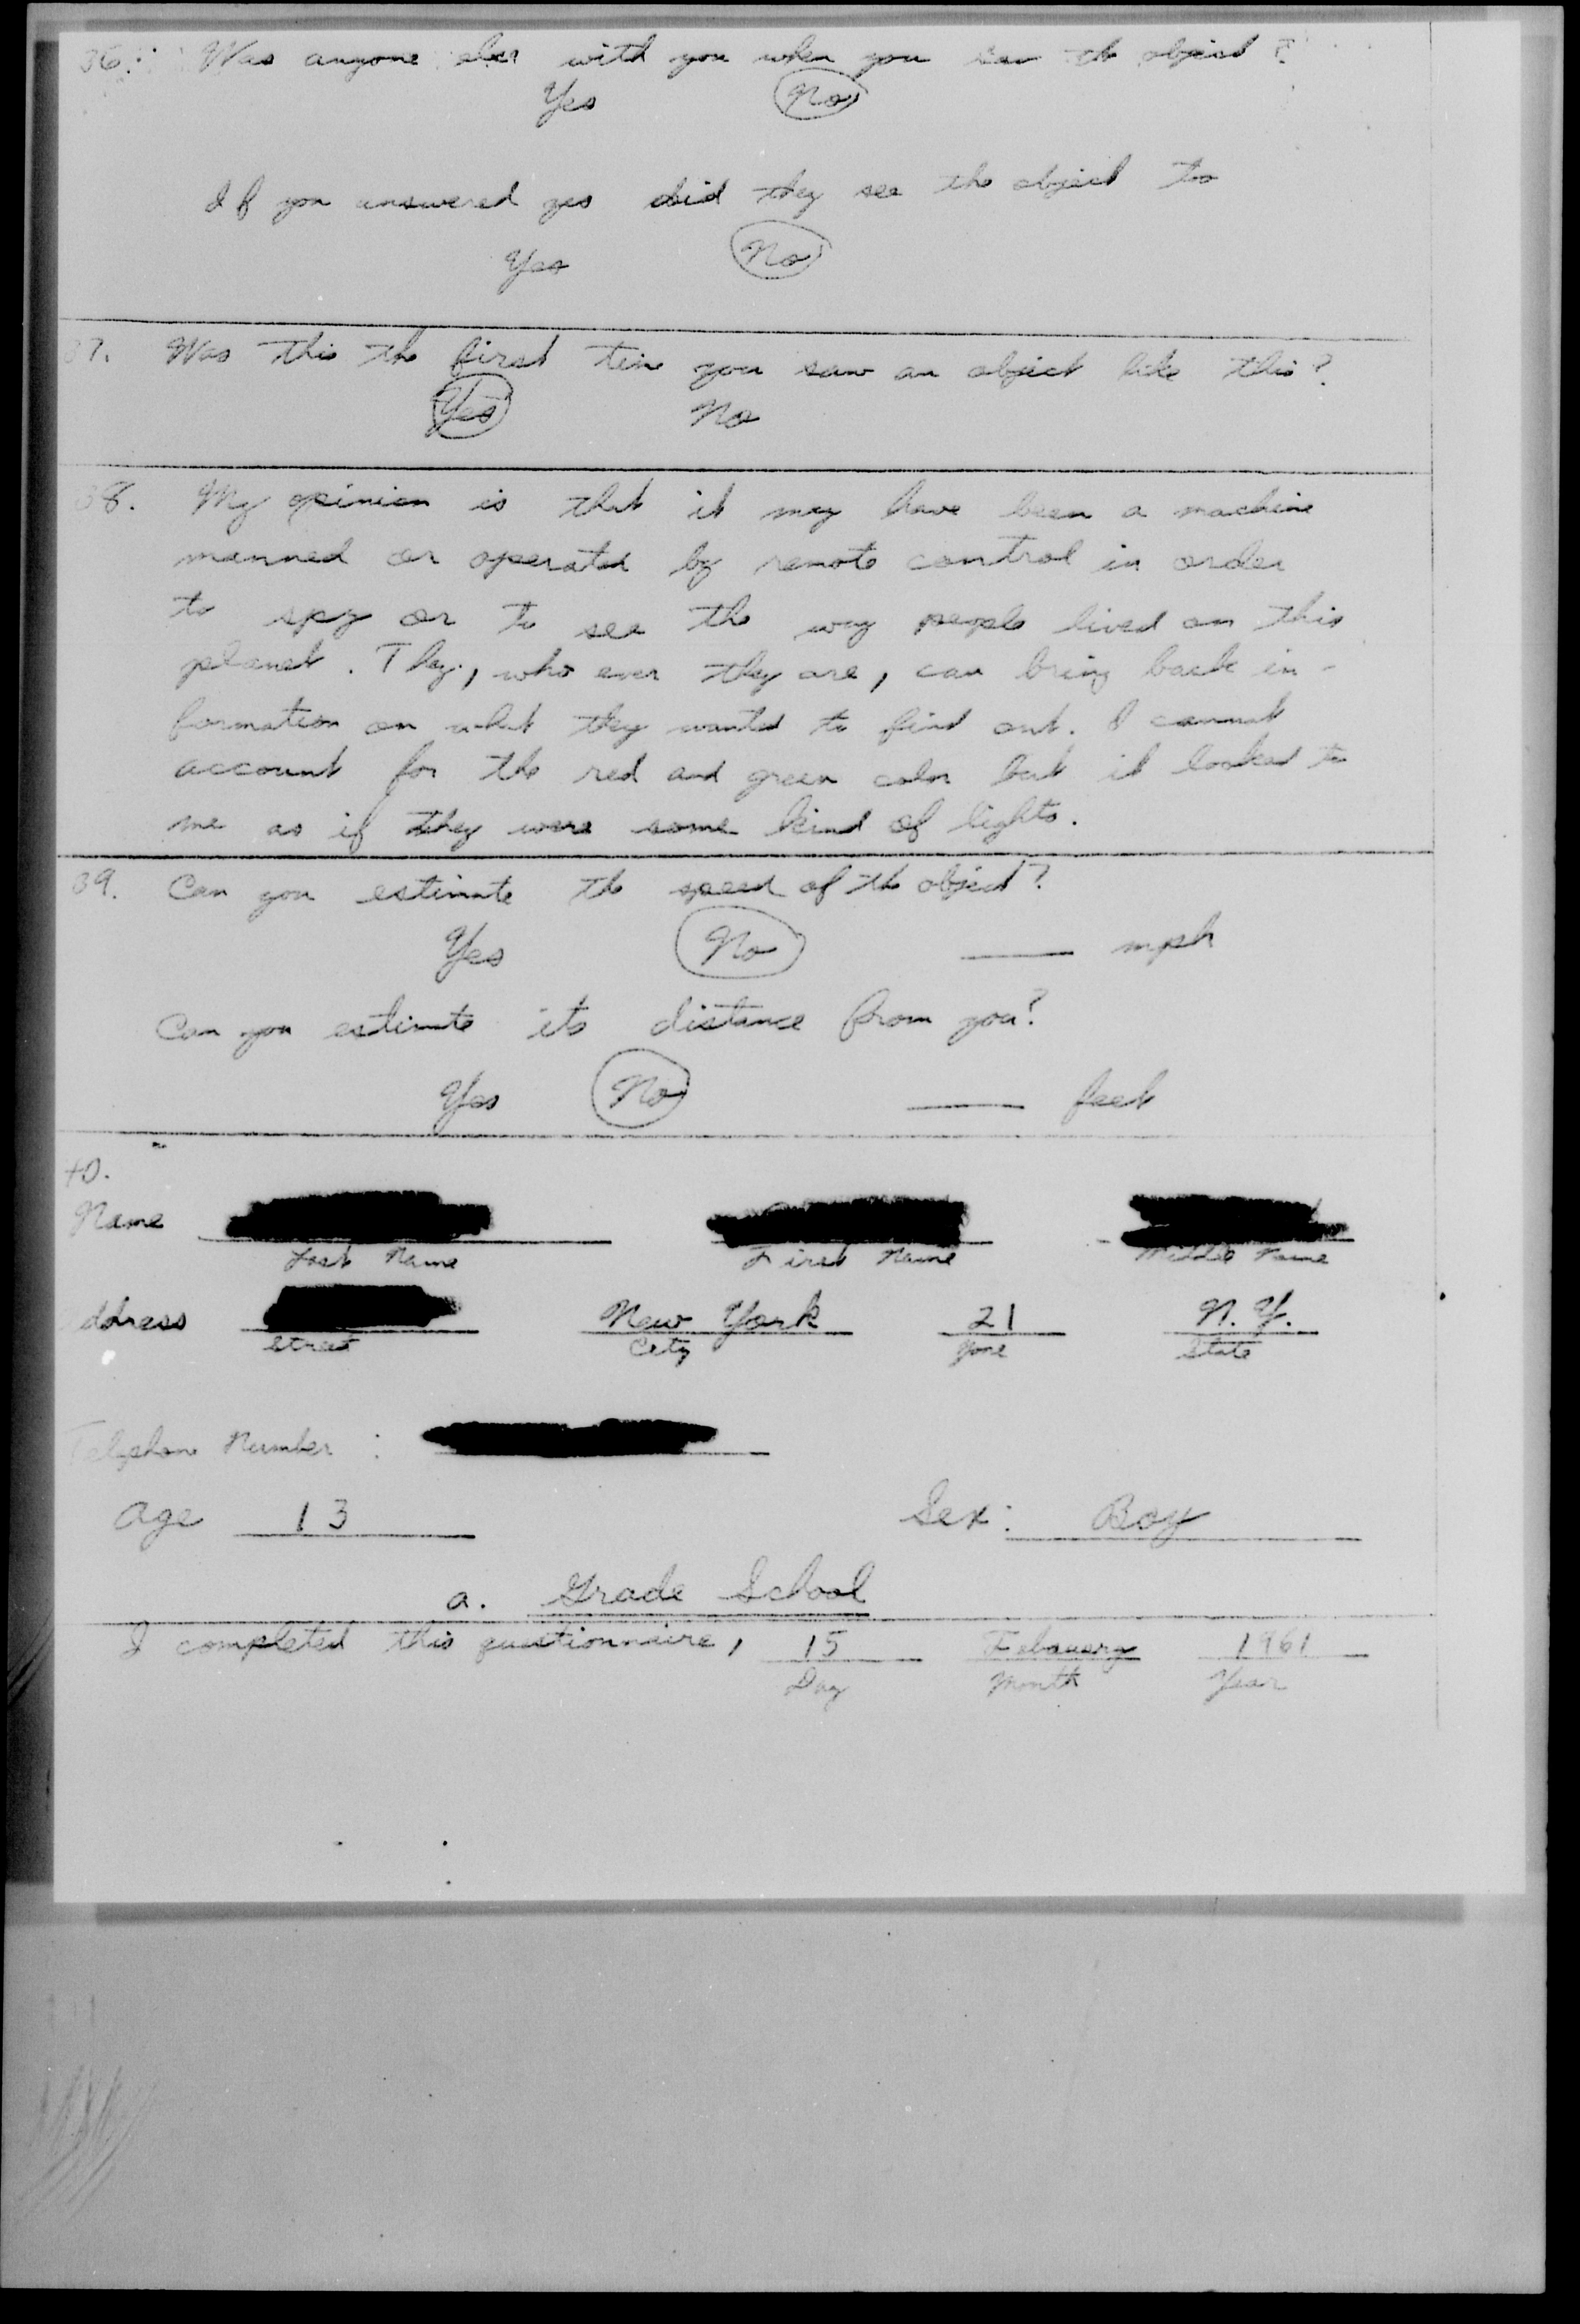 36. Was anyone else with you when you saw the object?
Yes No
If you answered yes did they see the object too
Yes No
37. Was this the first time you saw an object like this?
Yes No
38. My opinion is that it may have been a machine
manned or operated by remote control in order
to spy or to see the way people lived on this
planet. They, who ever they are, can bring back in-
formation on what they wanted to find out. I cannot
account for the red and green color but it looked to
me as if they were some kind of lights.
39. Can you estimate the speed of the object?
Yes No mph
Can you estimate its distance from you?
Yes No feet
40.
Name
Last Name First Name Middle Name
ddress New York 21 N.Y.
Street City Zone State
Telephone Number :
Age 13 Sex: Boy
a. Grade School
I completed this questionnaire, 15 Febauary 1961
Day Month Year